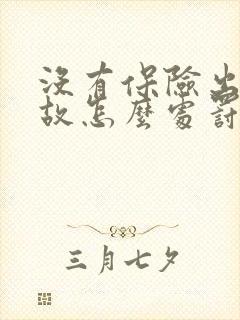 沒有保險出
故怎麼處罰
三月七夕